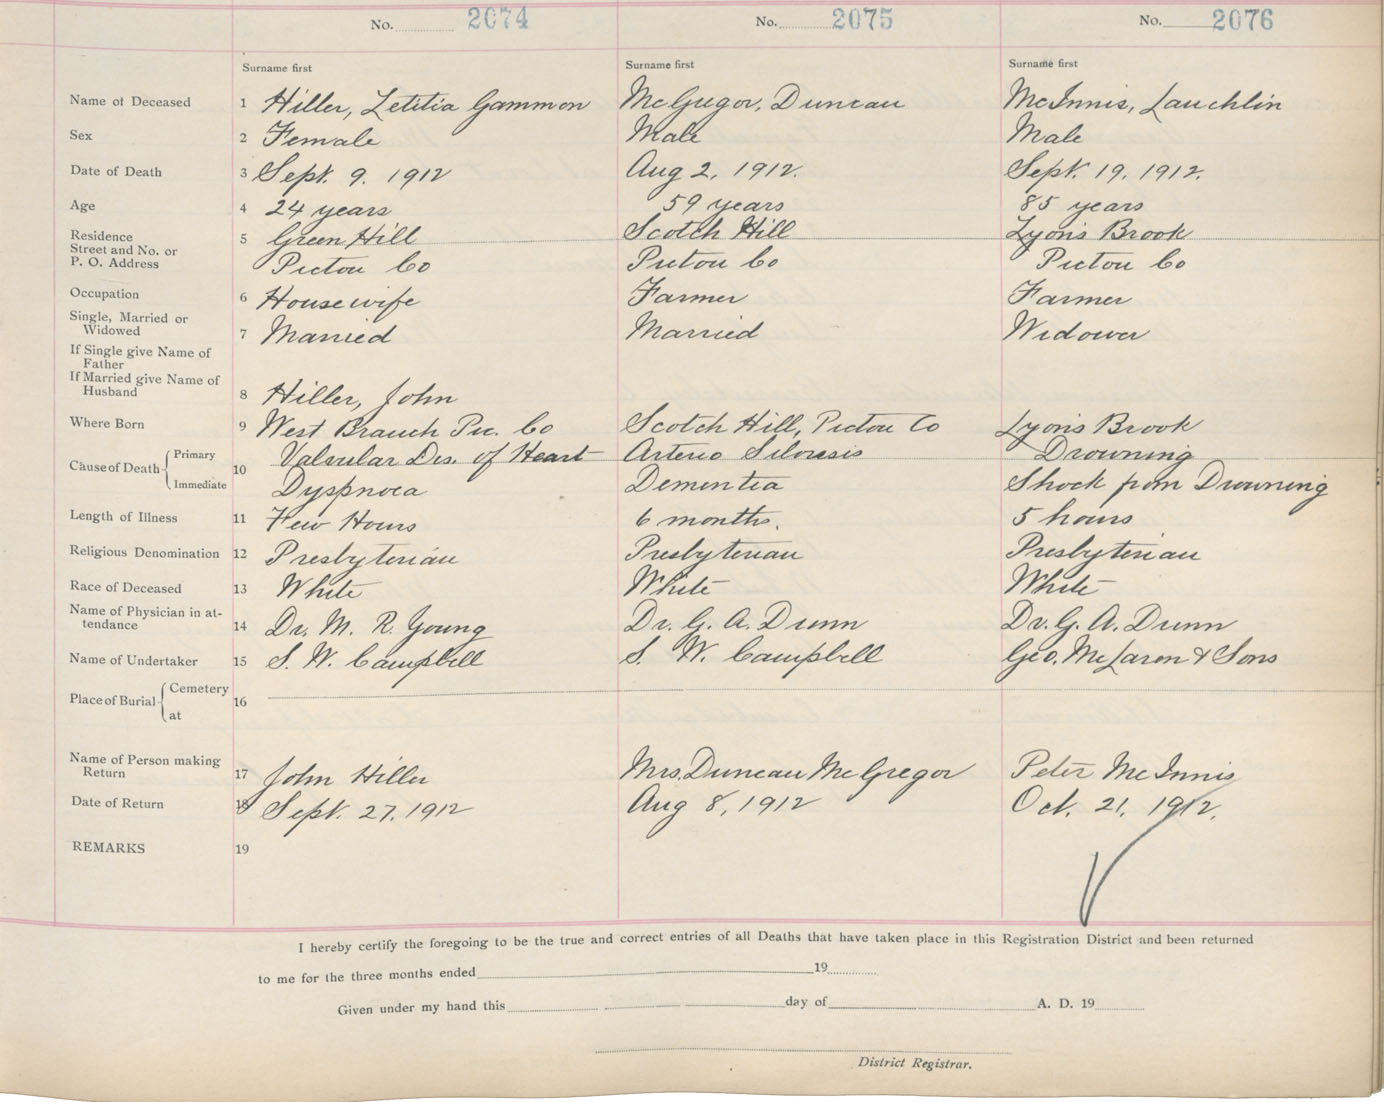 No. 2074 No. 2075 No. 2076
Surname first Surname first Surname first
Name of Deceased 1 Hiller, Letitia Gammon McGregor, Duncan McInnis, Lauchlin
Sex 2 Female Male Male
Date of Death 3 Sept. 9. 1912 Aug 2, 1912. Sept. 19, 1912.
Age 4 24 years 59 years 85 years
Residence
Street and No. or 5 Green Hill Scotch Hill Lyons Brook
P. O. Address Pictou Co Pictou Co Pictou Co
Occupation 6 Housewife Farmer Farmer
Single, Married or
Widowed 7 Married Married Widower
If Single give Name of
Father
If Married give Name of
Husband 8 Hiller, John
Where Born 9 West Branch Pic. Co Scotch Hill, Pictou Co Lyons Brook
Cause of Death Primary 10 Valvular Dis. of Heart Arterio Silorisis Drowning
Immediate Dyspnoea Dementia Shock from Drowning
Length of Illness 11 Few Hours 6 months. 5 hours
Religious Denomination 12 Presbyterian Presbyterian Presbyterian
Race of Deceased 13 White White White
Name of Physician in at-
tendance 14 Dr. M. R. Young Dr. G. A. Dunn Dr. G. A. Dunn
Name of Undertaker 15 S. W. Campbell S. W. Campbell Geo. McLaren & Sons
Place of Burial Cemetery 16
at
Name of Person making
Return 17 John Hiller Mrs. Duncan McGregor Peter McInnis
Date of Return 18 Sept. 27. 1912 Aug 8, 1912 Oct. 21, 1912.
REMARKS 19
I hereby certify the foregoing to be the true and correct entries of all Deaths that have taken place in this Registration District and been returned
to me for the three months ended 19
Given under my hand this day of A. D. 19
District Registrar.